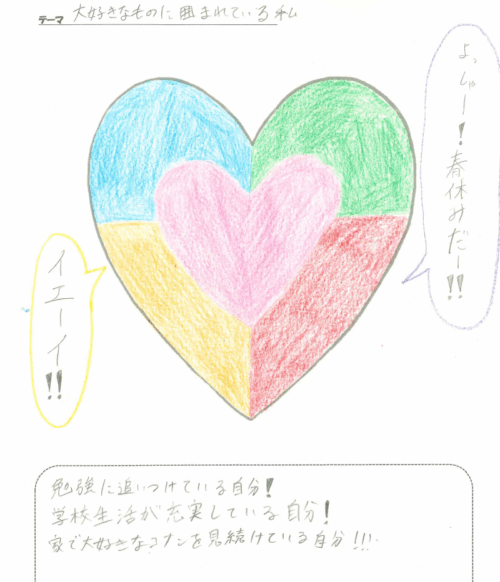 テーマ 大好きなものに囲まれている私
よっしゃー！春休みだー!!
イエーイ!!
勉強に追いつけている自分！
学校生活が充実している自分！
家で大好きなコナンを見続けている自分!!!